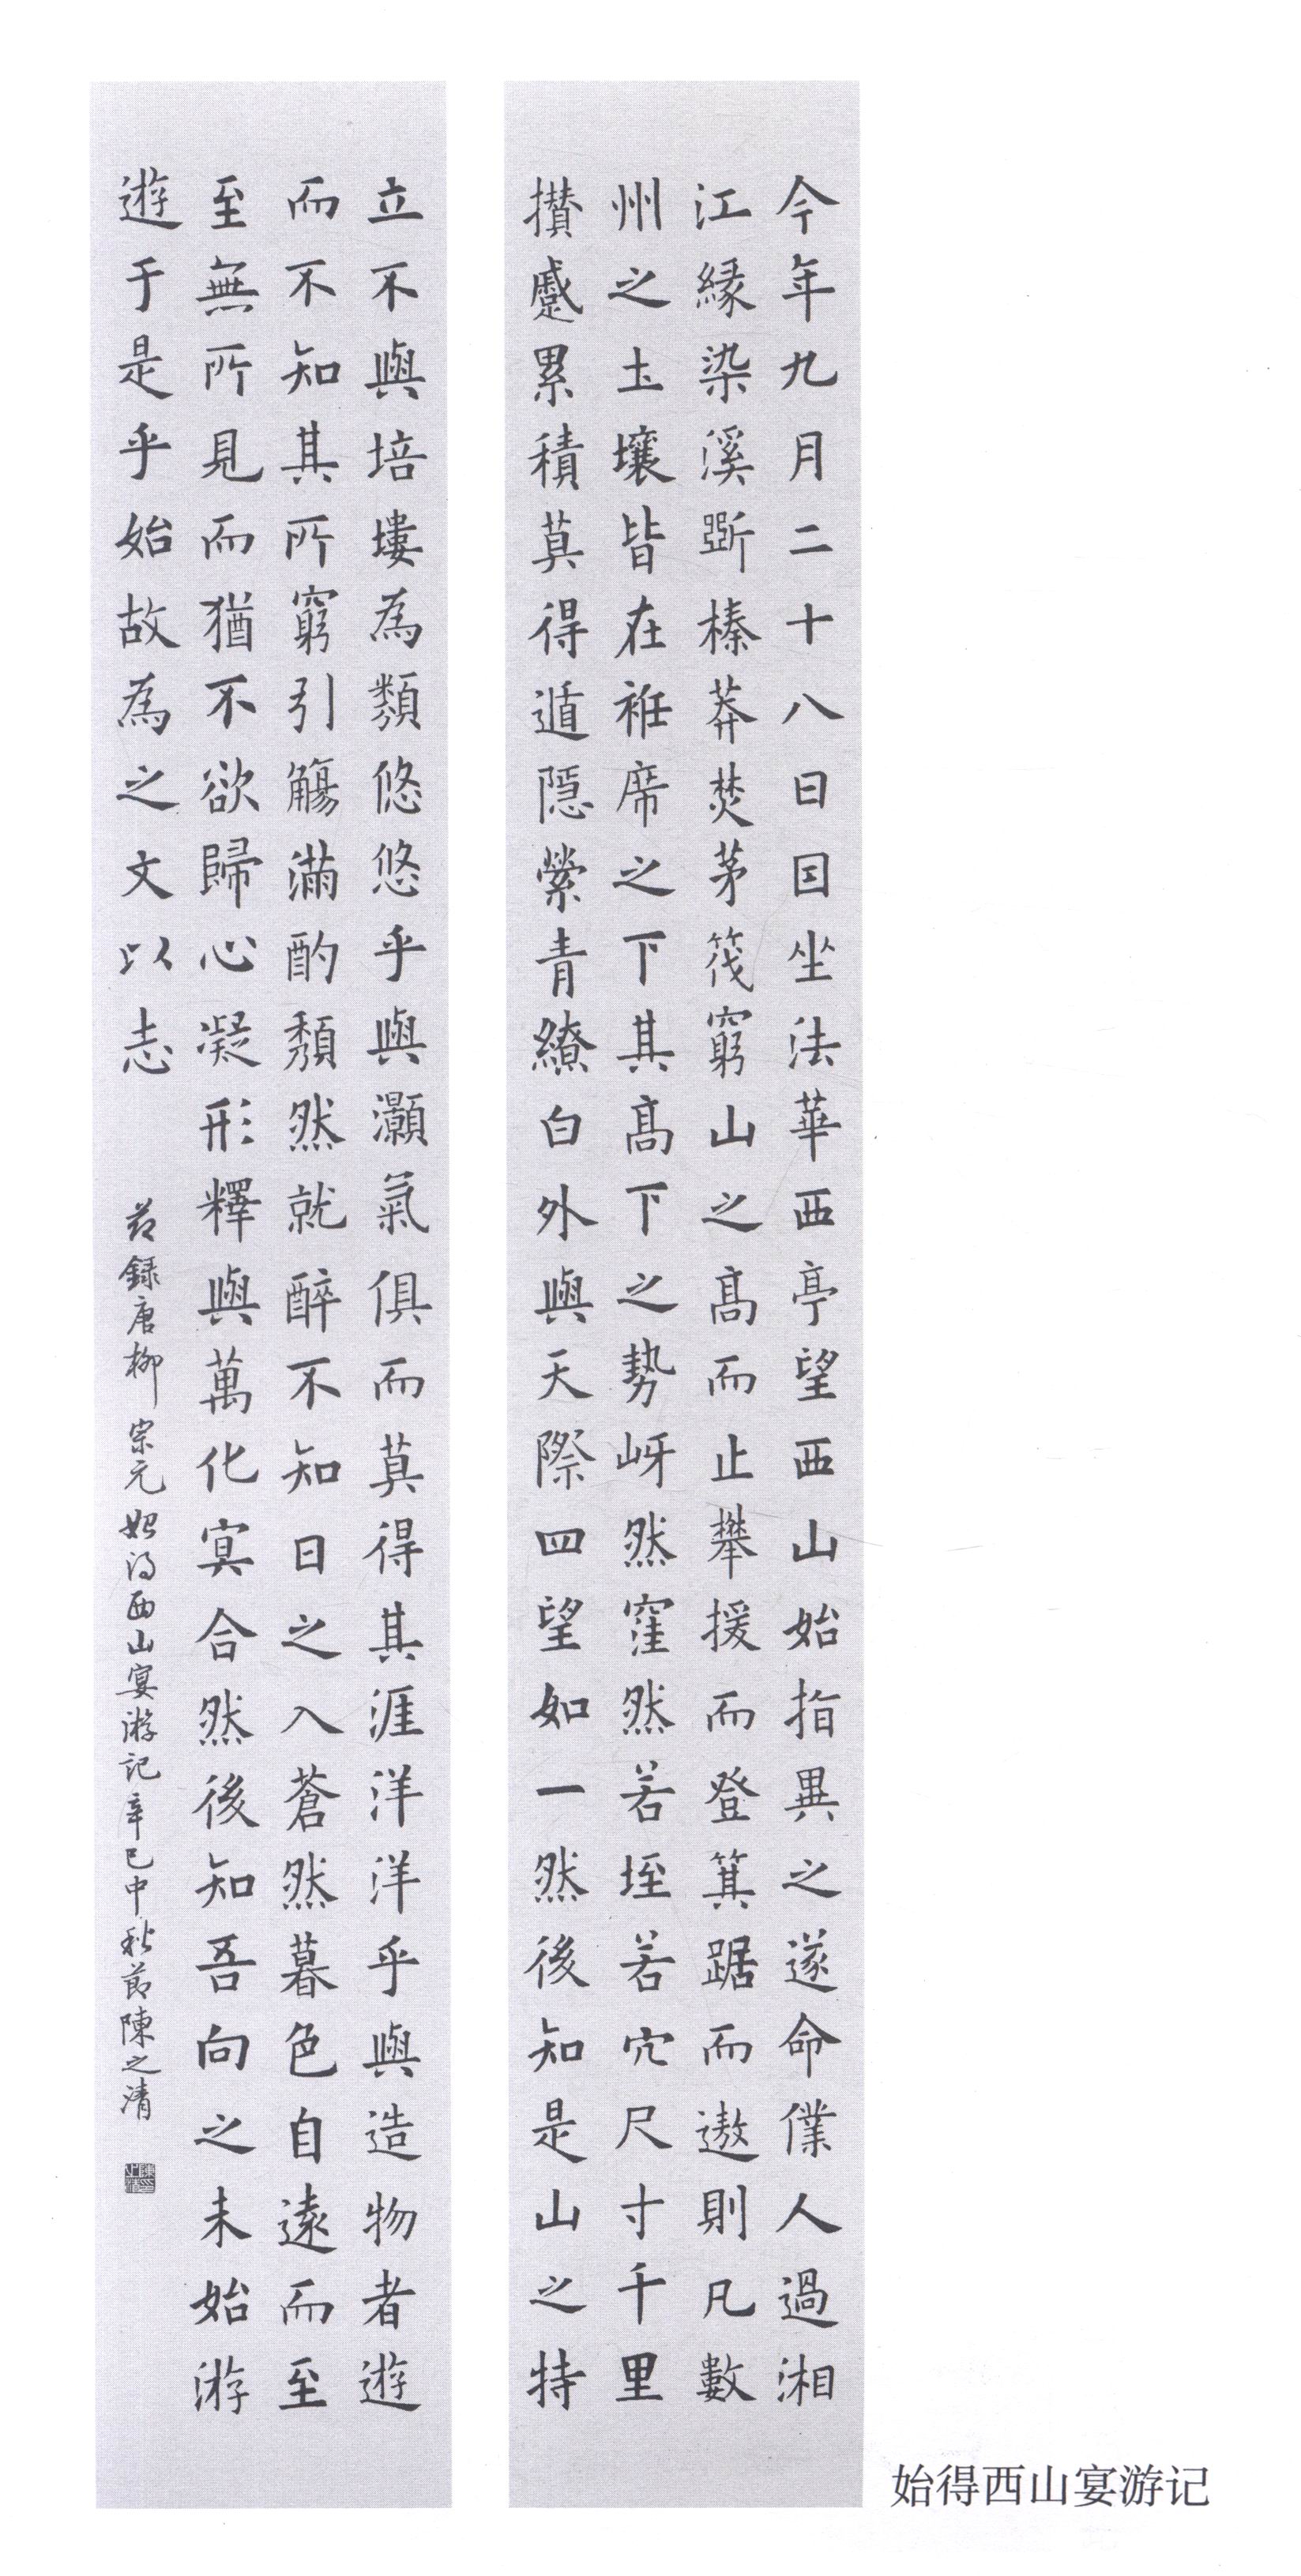 今年九月二十八日因坐法華西亭望西山始指異之遂命僕人過湘
江緣染溪斲榛莽焚茅筏窮山之高而止攀援而登箕踞而遨則凡數
州之土壤皆在袵席之下其高下之勢岈然窪然若垤若穴尺寸千里
攅蹙累積莫得遁隱縈青繚白外與天際四望如一然後知是山之特
立不與培塿為類悠悠乎與灝氣俱而莫得其涯洋洋乎與造物者遊
而不知其所窮引觴滿酌頹然就醉不知日之入蒼然暮色自遠而至
至無所見而猶不欲歸心凝形釋與萬化冥合然後知吾向之未始游
遊于是乎始故為之文以志
節録唐柳宗元始得西山宴游記辛巳中秋節陳之清
始得西山宴游记